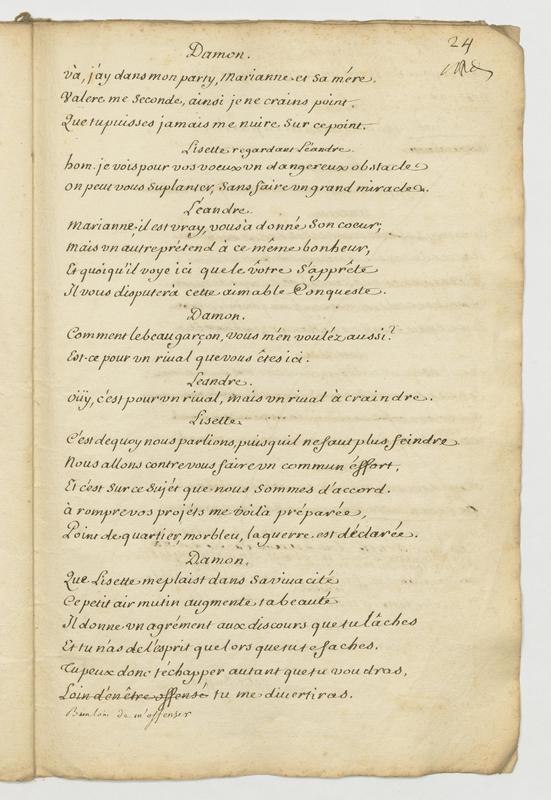 24
Damon.
Và, j'ay dans mon party, Marianne et Sa mére.
Valere me Seconde, ainsi je ne crains point.
Que tu puisses jamais me nuire Sur ce point.
Lisette regardant Léandre.
hom. je vois pour vos voeux vn dangereux obstacle
on peut vous Suplanter, Sans faire vn grand miracle.
Léandre.
Marianne, il est vray, vous a donné Son coeur;
Mais vn autre prétend à ce même bonheur,
Et quoiqu'il voye ici que le vôtre S'apprête
Il vous disputera cette aimable Conqueste.
Damon.
Comment le beau garçon, vous m'en vouléz aussi?
Est-ce pour vn riual que vous êtes ici.
Léandre.
oüy, c'est pour vn riual, mais vn riual à craindre.
Lisette
C'est dequoy nous parlions, puisquil ne faut plus feindre
Nous allons contre vous faire vn commun éffort,
Et c'est Sur ce Sujét que nous Sommes d'accord.
à rompre vos projéts me voila préparée,
Point de quartier, morbleu, la guerre est déclarée.
Damon.
Que Lisette me plaist dans Sa viuacité
Ce petit air mutin augmente ta beauté
Il donne vn agrément aux discours que tu lâches
Et tu n'as de l'esprit que lors que tu te faches.
Tu peux donc t'échapper autant que tu voudras,
Loin d'en être offensé tu me diuertiras.
Bien loin de m'offenser